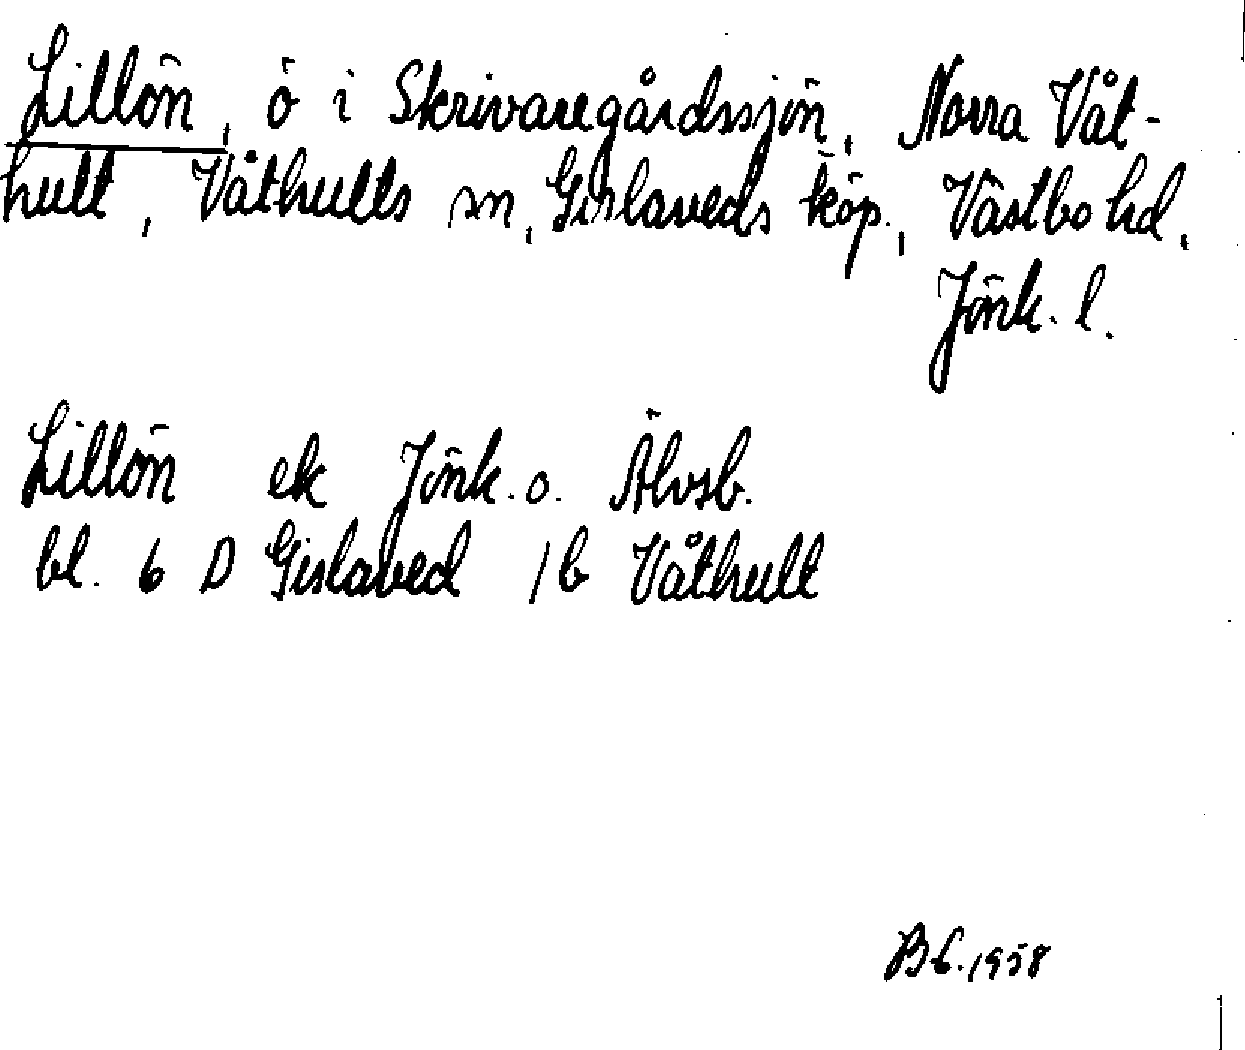 Lillön, ö i Skrivaregårdssjön, Norra Våt-
hult, Våthults sn, Gislaveds köp., Västbo hd,
Jönk. l.
Lillön ek Jönk. o. Älvsb.
bl. 6 D Gislaved 1b Våthult
1958